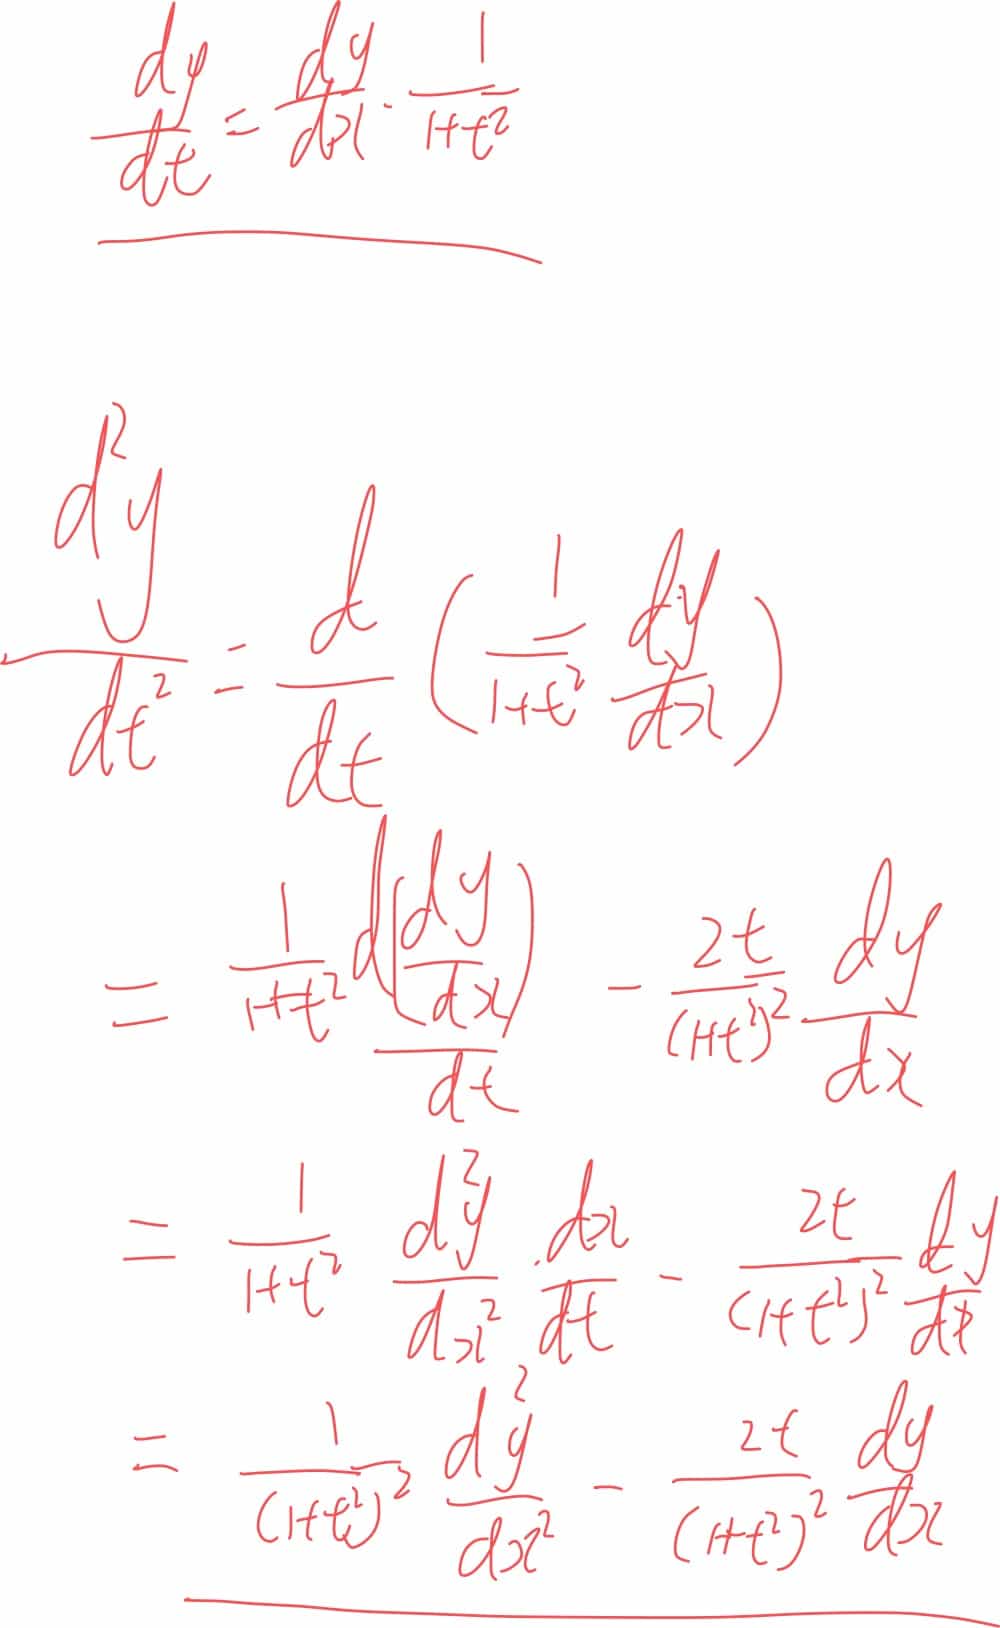 dy/dt = dy/dx · 1/(1+t²)
d²y/dt² = d/dt (1/(1+t²) dy/dx)
= 1/(1+t²) d(dy/dx)/dt - 2t/(1+t²)² dy/dx
= 1/(1+t²) d²y/dx² · dx/dt - 2t/(1+t²)² dy/dt
= 1/(1+t²)² d²y/dx² - 2t/(1+t²)² dy/dx